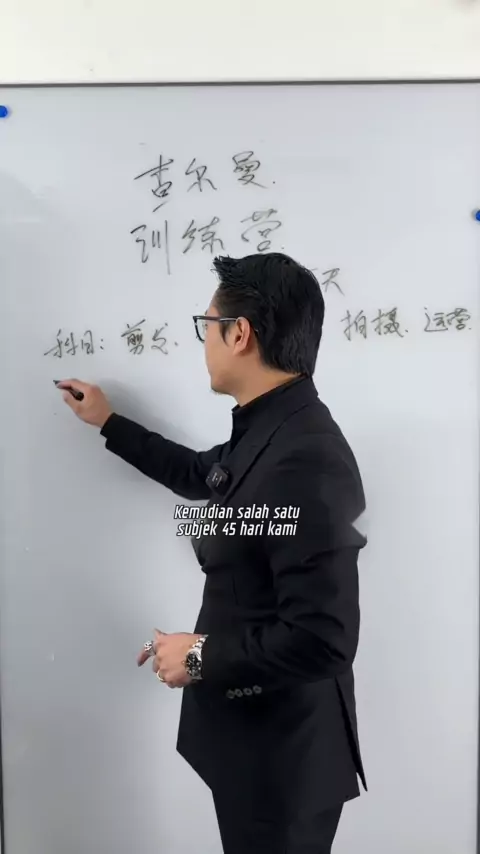 吉尔曼
训练营
天
科目: 剪发. 拍摄. 运营
Kemudian salah satu
subjek 45 hari kami